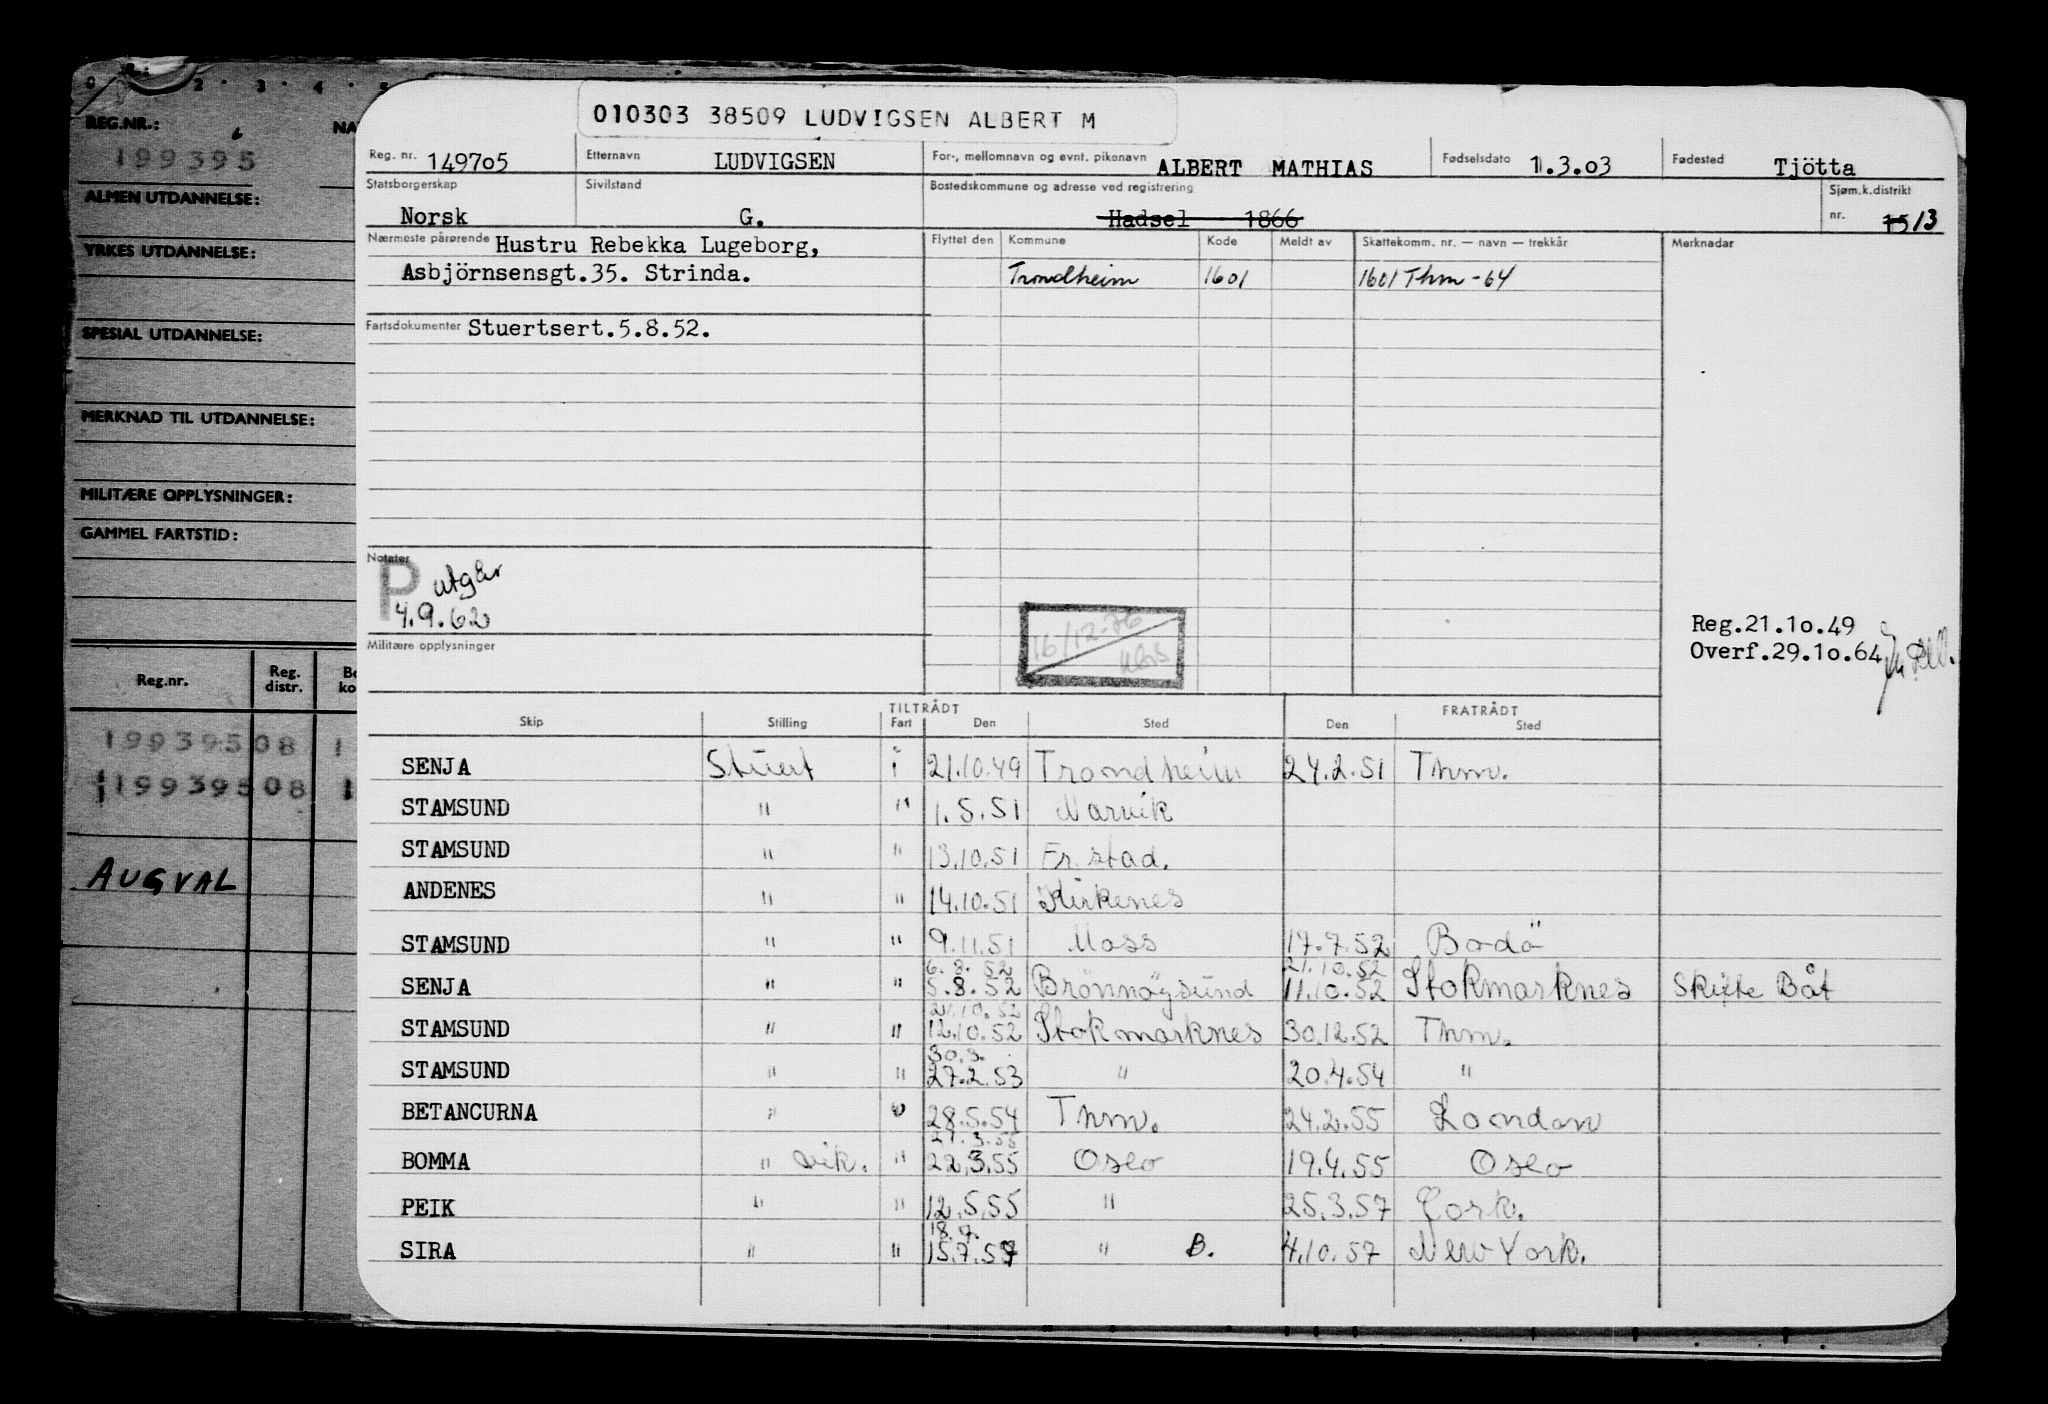 0 2 . 3 . 4 . 5
REG.NR.: NA
199395
ALMEN UTDANNELSE:
YRKES UTDANNELSE:
SPESIAL UTDANNELSE:
MERKNAD TIL UTDANNELSE:
MILITÆRE OPPLYSNINGER:
GAMMEL FARTSTID:
Reg.nr. Reg. distr. Be ko
199395 08 1
199395 08
AUGVAL
010303 38509 LUDVIGSEN ALBERT M
Reg. nr. 149705 Etternavn LUDVIGSEN For-, mellomnavn og evnt. pikenavn ALBERT MATHIAS Fødselsdato 1.3.03 Fødested Tjötta
Statsborgerskap Norsk Sivilstand G. Bostedskommune og adresse ved registrering Hadsel 1866 Sjøm.k.distrikt nr. 15 13
Nærmeste pårørende Hustru Rebekka Lugeborg, Flyttet den Kommune Kode Meldt av Skattekomm. nr. — navn — trekkår Merknadar
Asbjörnsensgt.35. Strinda. Trondheim 1601 1601 Thm - 64
Fartsdokumenter Stuertsert.5.8.52.
Notater
P utgår
4.9.62
16/12-76
Militære opplysninger
Reg.21.1o.49
Overf.29.1o.64
TILTRÅDT FRATRÅDT
Skip Stilling Fart Den Sted Den Sted
SENJA Stuert i 21.10.49 Trondheim 24.2.51 Thm.
STAMSUND " " 1.5.51 Narvik
STAMSUND " " 13.10.51 Fr.stad.
ANDENES " " 14.10.51 Kirkenes
STAMSUND " " 9.11.51 Moss 17.7.52 Bodö
6.8.52 21.10.52
SENJA " " 5.8.52 Brönnöysund 11.10.52 Stokmarknes Skifte Båt
21.10.52
STAMSUND " " 12.10.52 Stokmarknes 30.12.52 Thm.
30.3.
STAMSUND " " 27.2.53 " 20.4.54 "
BETANCURNA " " 28.5.54 Thm. 24.2.55 London
21.3.55
BOMMA " vik. " 22.3.55 Oslo 19.4.55 Oslo
PEIK " " 12.5.55 " 25.3.57 Cork.
18.7.
SIRA " " 15.7.57 " B. 4.10.57 New York.